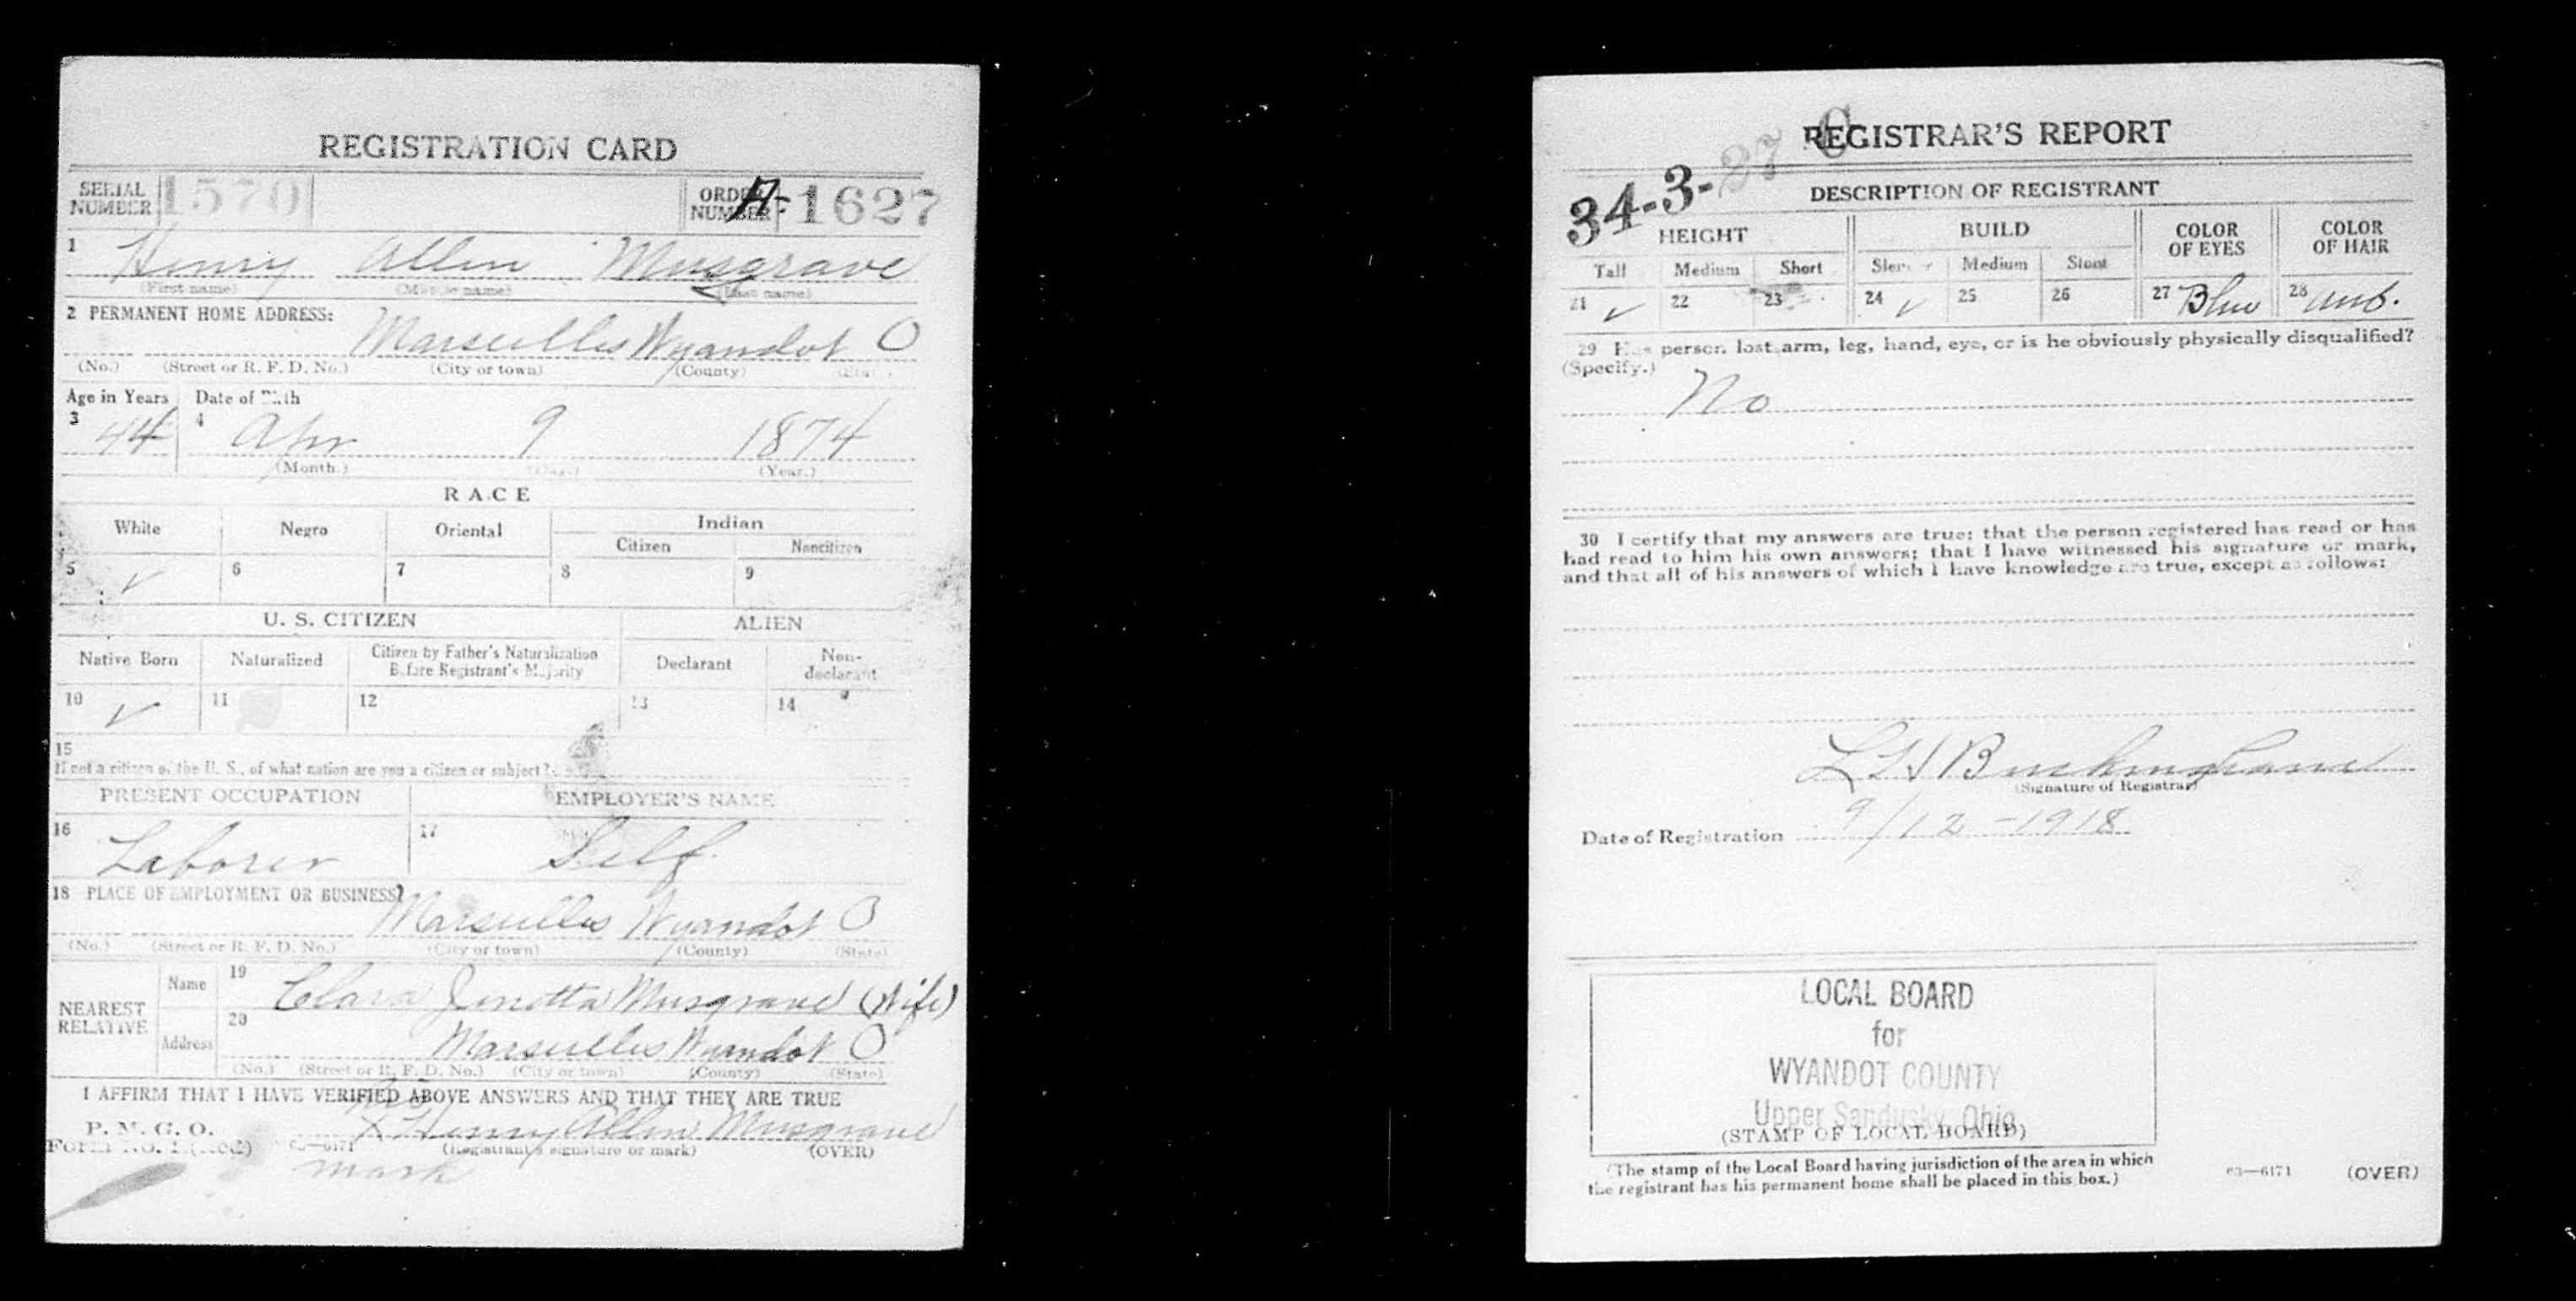 REGISTRATION CARD
SERIAL NUMBER 1570 ORDER NUMBER A-1627
1 Henry Allen Musgrave
(First name) (Middle name) (Last name)
2 PERMANENT HOME ADDRESS:
Marseilles Wyandot O
(No.) (Street or R. F. D. No.) (City or town) (County) (State)
Age in Years Date of Birth
3 44 4 Apr 9 1874
(Month.) (Day.) (Year.)
RACE
White Negro Oriental Indian
Citizen Noncitizen
5 ✓ 6 7 8 9
U. S. CITIZEN ALIEN
Native Born Naturalized Citizen by Father's Naturalization Before Registrant's Majority Declarant Non-declarant
10 ✓ 11 12 13 14
15
If not a citizen of the U. S., of what nation are you a citizen or subject?
PRESENT OCCUPATION EMPLOYER'S NAME
16 Laborer 17 Self
18 PLACE OF EMPLOYMENT OR BUSINESS?
Marseilles Wyandot O
(No.) (Street or R. F. D. No.) (City or town) (County) (State)
NEAREST RELATIVE Name 19 Clara Jenetta Musgrave (Wife)
Address 20 Marseilles Wyandot O
(No.) (Street or R. F. D. No.) (City or town) (County) (State)
I AFFIRM THAT I HAVE VERIFIED ABOVE ANSWERS AND THAT THEY ARE TRUE
his
P. M. G. O. X Henry Allen Musgrave
Form No. 1 (Red) 03—6171 (Registrant's signature or mark) (OVER)
mark
REGISTRAR'S REPORT
34-3-27 C
DESCRIPTION OF REGISTRANT
HEIGHT BUILD COLOR OF EYES COLOR OF HAIR
Tall Medium Short Slender Medium Stout
21 ✓ 22 23 24 ✓ 25 26 27 Blue 28 Aub.
29 Has person lost arm, leg, hand, eye, or is he obviously physically disqualified?
(Specify.) No
30 I certify that my answers are true; that the person registered has read or has
had read to him his own answers; that I have witnessed his signature or mark,
and that all of his answers of which I have knowledge are true, except as follows:
Buckingham
(Signature of Registrar)
Date of Registration 9/12-1918
LOCAL BOARD
for
WYANDOT COUNTY
Upper Sandusky, Ohio
(STAMP OF LOCAL BOARD)
(The stamp of the Local Board having jurisdiction of the area in which
the registrant has his permanent home shall be placed in this box.)
03—6171 (OVER)